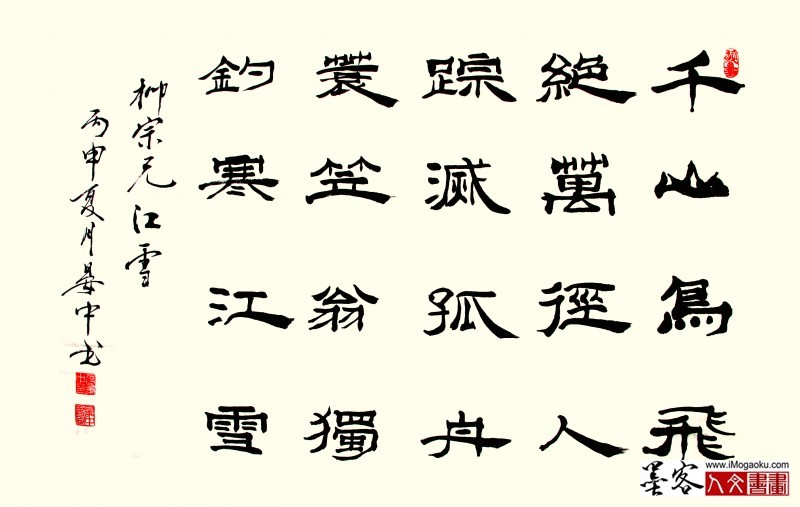 千山鳥飛
絶萬徑人
踪滅孤舟
蓑笠翁獨
釣寒江雪
柳宗元江雪
丙申夏月晏中书
墨客
www.iMogaoku.com
人文書畫